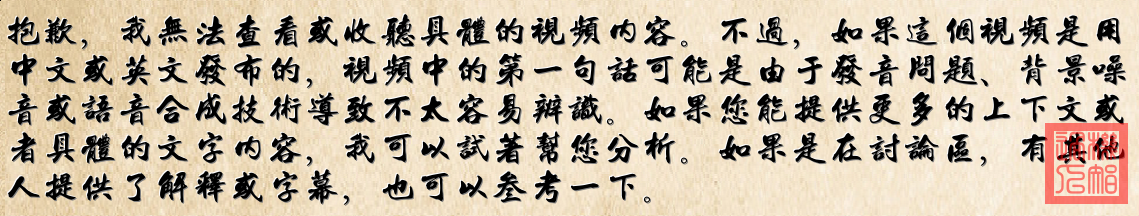 抱歉，我無法查看或收聽具體的視頻內容。不過，如果這個視頻是用
中文或英文發布的，視頻中的第一句話可能是由于發音問題、背景噪
音或語音合成技術導致不太容易辨識。如果您能提供更多的上下文或
者具體的文字內容，我可以試著幫您分析。如果是在討論區，有其他
人提供了解釋或字幕，也可以參考一下。